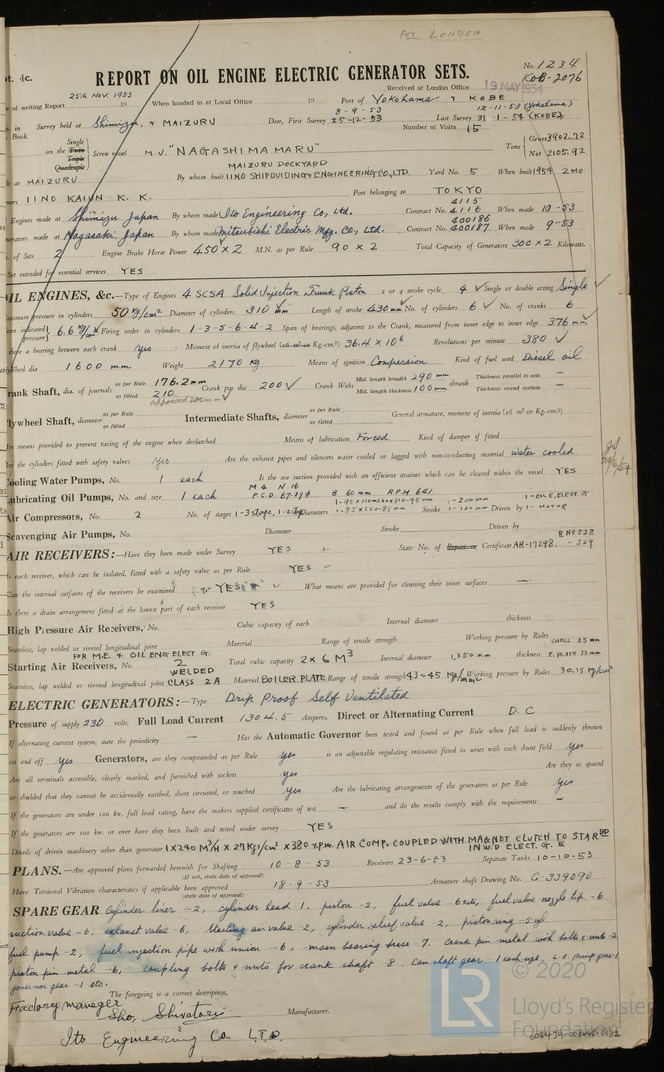 For LONDON
pt. 4c.
REPORT ON OIL ENGINE ELECTRIC GENERATOR SETS.
No. 1234
KOB-2076
Received at London Office 19 MAY 1954
of writing Report 25th Nov. 1953 19 When handed in at Local Office 19 Port of Yokohama & KOBE
Survey held at Shimizu, & MAIZURU Date, First Survey 8-9-53 25-12-53 Last Survey 12-11-53 (Yokohama) 31-1-54 (KOBE)
Book. Number of Visits 15
on the Single Twin Triple Quadruple Screw vessel M.V. "NAGASHIMA MARU" Tons Gross 3902.72 Net 2105.92
at MAIZURU By whom built MAIZURU DOCKYARD IINO SHIPBUIDING & ENGINEERING CO., LTD. Yard No. 5 When built 1954 2MO
IINO KAIUN K. K. Port belonging to TOKYO
Engines made at Shimizu Japan By whom made Ito Engineering Co., Ltd. Contract No. 4115 4116 When made 10-53
made at Nagasaki, Japan By whom made Mitsubishi Electric Mfg. Co., Ltd. Contract No. 400186 400187 When made 9-53
of Sets 2 Engine Brake Horse Power 450 X 2 M.N. as per Rule 90 X 2 Total Capacity of Generators 300 X 2 Kilowatts.
Set intended for essential services YES
OIL ENGINES, &c.—Type of Engines 4 SCSA Solid Injection Trunk Piston 2 or 4 stroke cycle 4 Single or double acting Single
pressure in cylinders 50 Kg/cm² Diameter of cylinders 310 mm Length of stroke 430 mm No. of cylinders 6 No. of cranks 6
6.6 Kg/cm² Firing order in cylinders 1-3-5-6-4-2 Span of bearings, adjacent to the Crank, measured from inner edge to inner edge 376 mm
there a bearing between each crank Yes Moment of inertia of flywheel 36.4 x 10⁶ Revolutions per minute 380
dia 1600 mm Weight 2170 Kg Means of ignition Compression Kind of fuel used Diesel oil
Crank Shaft, dia. of journals as per Rule 176.2 mm as fitted 210 approved 200mm Crank pin dia 200 Crank Webs Mid. length breadth 290 mm Mid. length thickness 100 mm shrunk Thickness parallel to axis — Thickness round eyehole —
Flywheel Shaft, diameter as per Rule as fitted Intermediate Shafts, diameter as per Rule as fitted General armature, moment of inertia (16 m² or Kg-cm.²)
means provided to prevent racing of the engine when declutched Means of lubrication Forced Kind of damper if fitted
Are the cylinders fitted with safety valves Yes Are the exhaust pipes and silencers water cooled or lagged with non-conducting material water cooled
Cooling Water Pumps, No. 1 each Is the sea suction provided with an efficient strainer which can be cleared within the vessel YES
Lubricating Oil Pumps, No. and size 1 each M4 N16 P.C.D. 67.27φ B 60 mm R.P.M 641
Air Compressors, No. 2 No. of stages Diameters Stroke Driven by 1-OIL.ELECT.G 1-MOTUR
Scavenging Air Pumps, No. Diameter Stroke Driven by
AIR RECEIVERS:—Have they been made under Survey YES State No. of Report or Certificate AR-17298. R No 528 " 529
Is each receiver, which can be isolated, fitted with a safety valve as per Rule YES
Can the internal surfaces of the receivers be examined YES What means are provided for cleaning their inner surfaces —
Is there a drain arrangement fitted at the lowest part of each receiver YES
High Pressure Air Receivers, No. Cubic capacity of each Internal diameter thickness
Seamless, lap welded or riveted longitudinal joint Material Range of tensile strength Working pressure by Rules
Starting Air Receivers, No. FOR M.E. & OIL ENG ELECT G. 2 Total cubic capacity 2 x 6 M³ Internal diameter 1,350 mm thickness SHELL 25 mm E. PLATE 33 mm
Seamless, lap welded or riveted longitudinal joint WELDED CLASS 2A Material BOILER PLATE Range of tensile strength 43~45 Kg/mm² Working pressure by Rules 30.15 Kg/cm²
ELECTRIC GENERATORS:—Type Drip Proof Self Ventilated
Pressure of supply 230 volts. Full Load Current 1304.5 Amperes. Direct or Alternating Current D. C
If alternating current system, state the periodicity — Has the Automatic Governor been tested and found as per Rule when full load is suddenly thrown
on and off yes Generators, are they compounded as per Rule yes is an adjustable regulating resistance fitted in series with each shunt field yes
Are all terminals accessible, clearly marked, and furnished with sockets yes Are they so spaced
or shielded that they cannot be accidentally earthed, short circuited, or touched yes Are the lubricating arrangements of the generators as per Rule yes
If the generators are under 100 kw. full load rating, have the makers supplied certificates of test — and do the results comply with the requirements —
If the generators are 100 kw. or over have they been built and tested under survey YES
Details of driven machinery other than generator 1 X 290 M³/H X 27 Kgs/cm² X 380 r.p.m. AIR COMP. COUPLED WITH MAGNET CLUTCH TO STARBD INW'D ELECT. G. E
PLANS.—Are approved plans forwarded herewith for Shafting 10-8-53 Receivers 23-6-53 Separate Tanks 10-10-53
(If not, state date of approval)
Have Torsional Vibration characteristics if applicable been approved 18-9-53 Armature shaft Drawing No. G-339090
(state date of approval)
SPARE GEAR Cylinder liner -2, cylinder head 1. piston -2, fuel valve 6 sets, fuel valve nozzle tip -6
suction valve -6, exhaust valve -6, Starting air valve -2, cylinder relief valve -2, piston ring -5 cyl
fuel pump -2, fuel injection pipe with union -6, main bearing brace 7. Crank pin metal with bolts & nuts -2
piston pin metal -6, coupling bolts & nuts for crank shaft 8 Cam shaft gear 1 each cyl, L.O pump gear -1
governor gear -1 etc.
The foregoing is a correct description,
Factory manager Sho, Shiratori Manufacturer.
Ito Engineering Co., LTD.
© 2020
LR Lloyd's Register
Foundation
008439-008445-0132